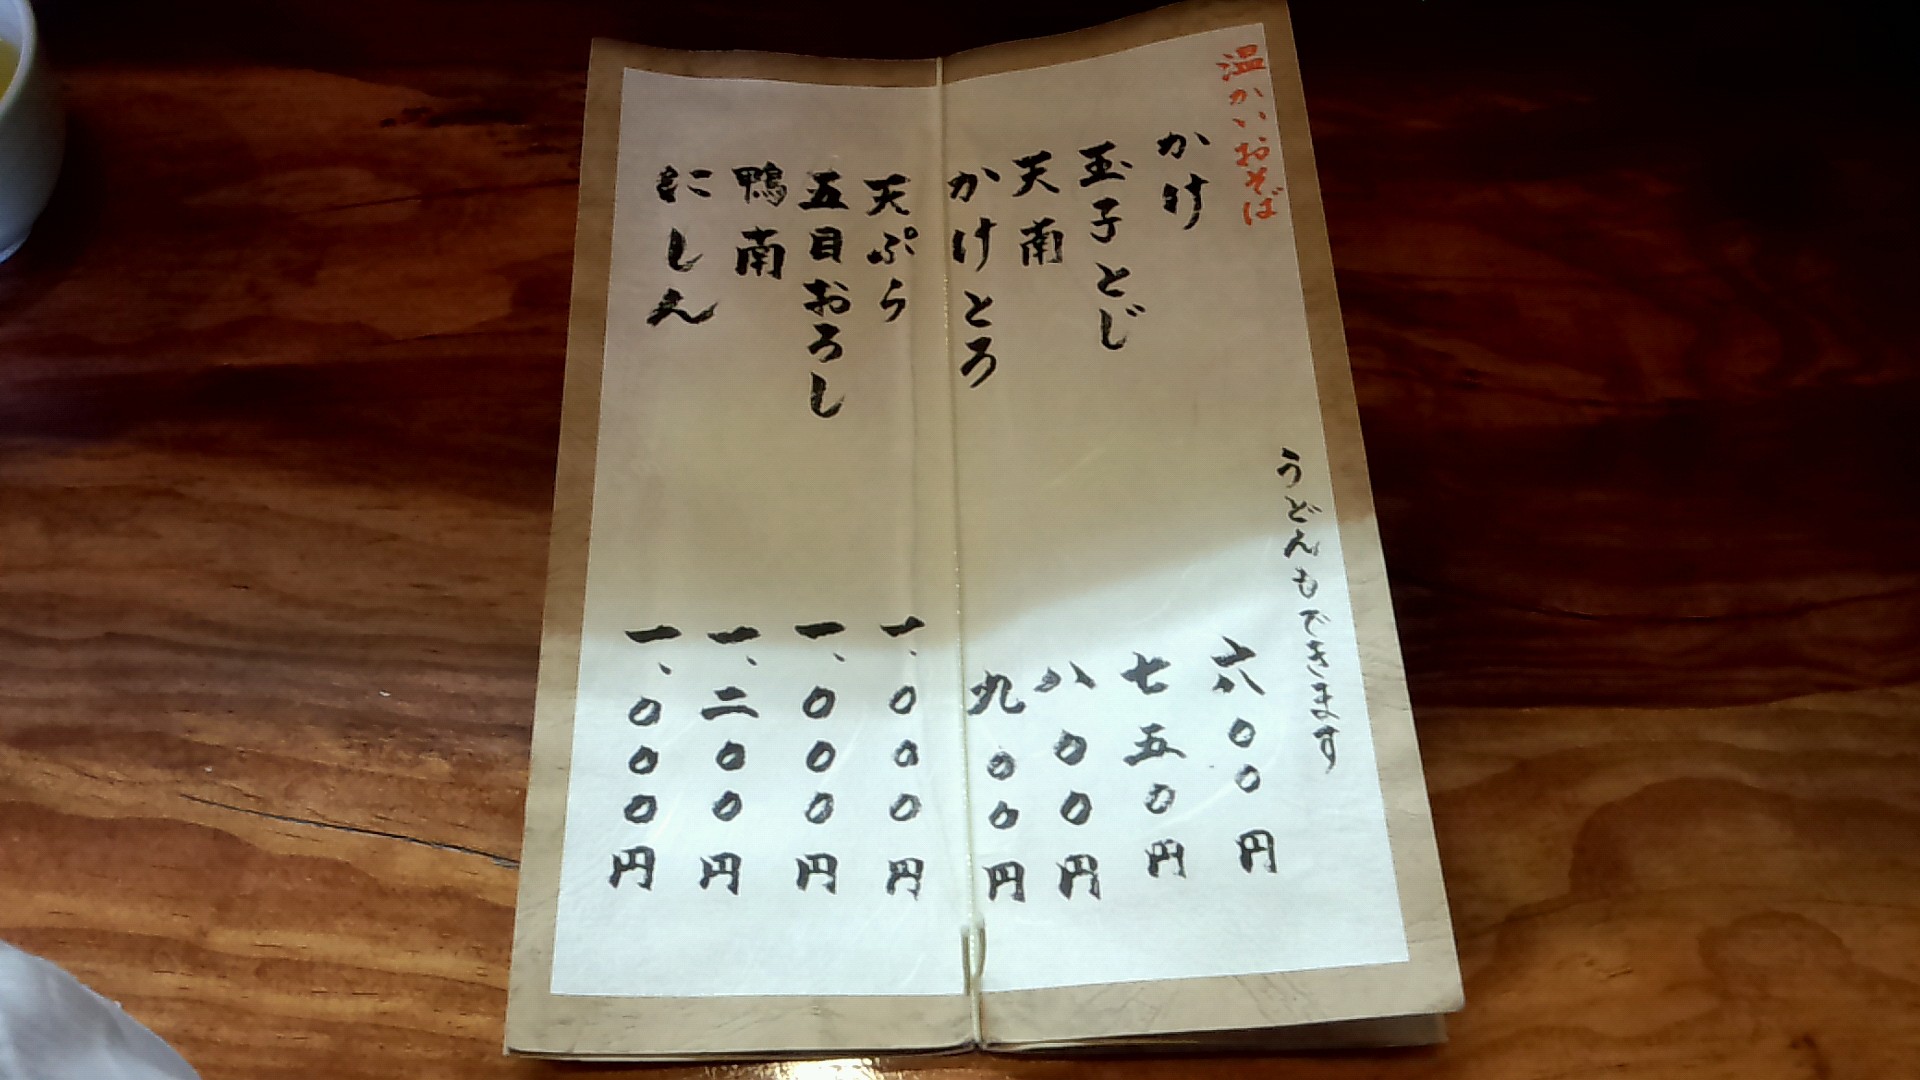 温かいおそば
うどんもできます
かけ 六〇〇円
玉子とじ 七五〇円
天南 八〇〇円
かけとろ 九〇〇円
天ぷら 一、〇〇〇円
五目おろし 一、〇〇〇円
鴨南 一、二〇〇円
にしん 一、〇〇〇円